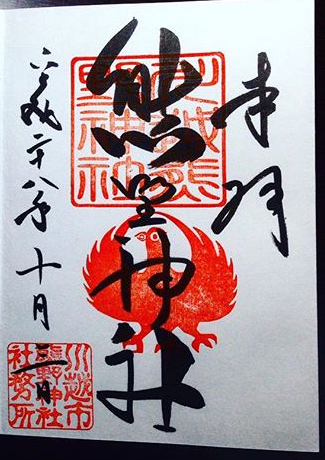 奉拝
川越熊
野神社
熊野神社
平成二十八年十月三日
川越市
熊野神社
社務所